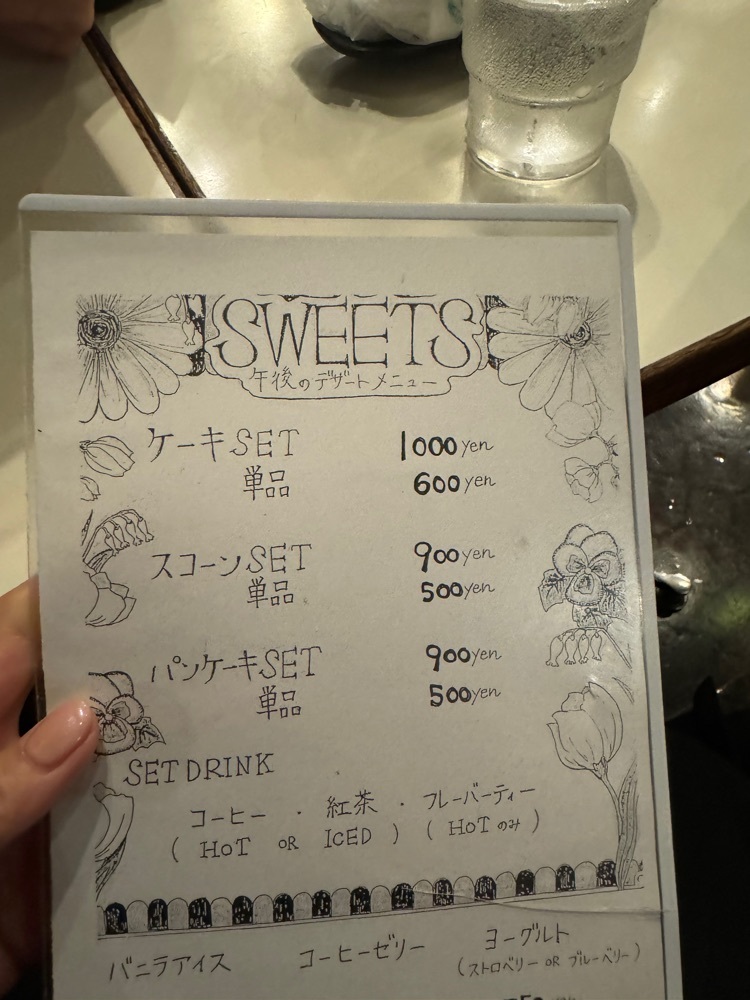 SWEETS
午後のデザートメニュー
ケーキSET 1000yen
単品 600yen
スコーンSET 900yen
単品 500yen
パンケーキSET 900yen
単品 500yen
SET DRINK
コーヒー ・ 紅茶 ・ フレーバーティー
( HOT OR ICED ) ( HOT のみ )
バニラアイス コーヒーゼリー ヨーグルト
(ストロベリー OR ブルーベリー)